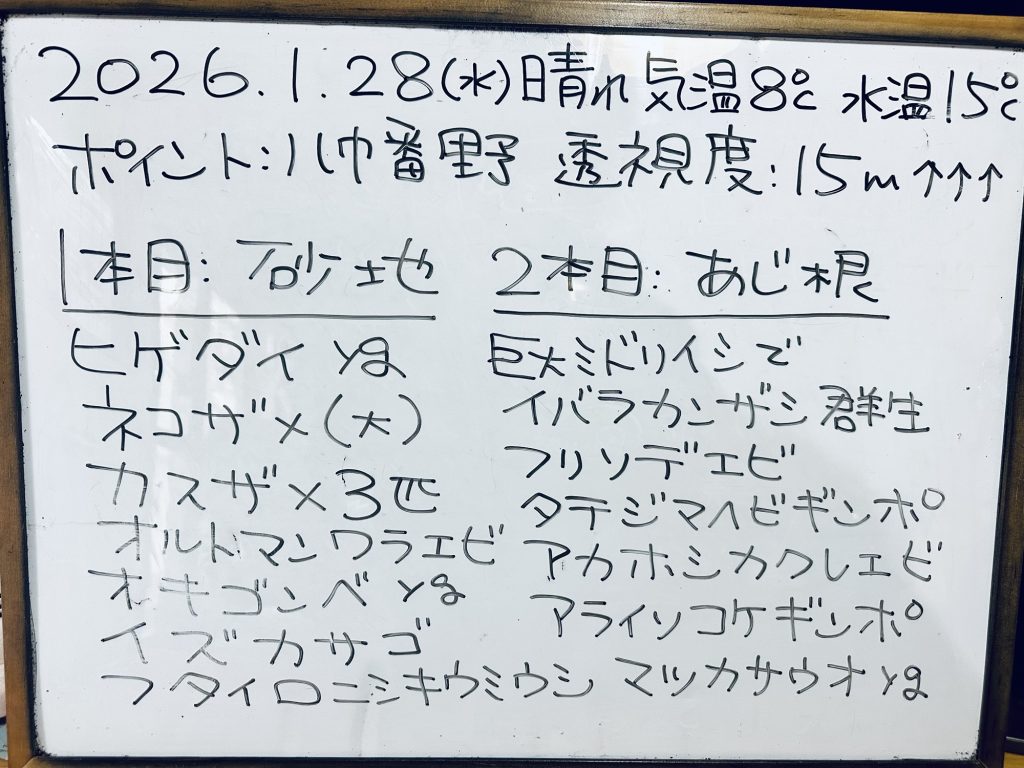 2026.1.28(水)晴れ 気温8℃ 水温15℃
ポイント:八巾番野 透視度:15m↑↑↑
1本目:砂地
ヒゲダイyg
ネコザメ(大)
カスザメ3匹
オルトマンワラエビ
オキゴンベyg
イズカサゴ
フタイロニシキウミウシ
2本目:あじ根
巨大ミドリイシで
イバラカンザシ群生
フリソデエビ
タテジマヘビギンポ
アカホシカクレエビ
アライソコケギンポ
マツカサウオyg